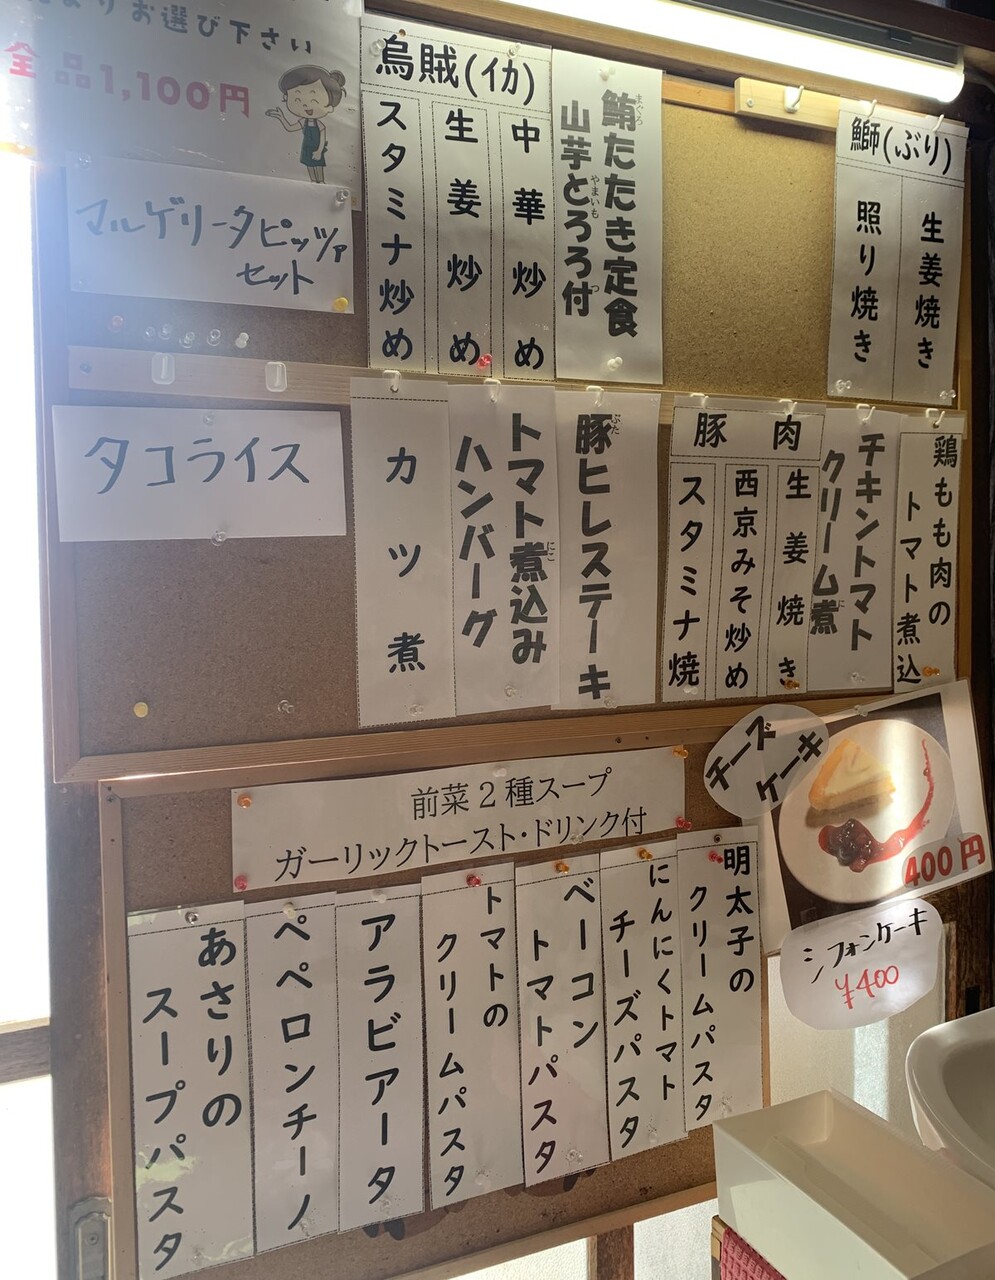 よりお選び下さい
全品1,100円
マルゲリータピッツァ
セット
烏賊(イカ)
中華炒め
生姜炒め
スタミナ炒め
鮪たたき定食
まぐろ
山芋とろろ付
やまいも
つ
鰤(ぶり)
生姜焼き
照り焼き
タコライス
カツ煮
トマト煮込み
にこ
ハンバーグ
豚ヒレステーキ
ぶた
豚肉
生姜焼き
西京みそ炒め
スタミナ焼
チキントマト
クリーム煮
に
鶏もも肉の
トマト煮込
前菜2種スープ
ガーリックトースト・ドリンク付
チーズ
ケーキ
400円
シフォンケーキ
¥400
明太子の
クリームパスタ
にんにくトマト
チーズパスタ
ベーコン
トマトパスタ
トマトの
クリームパスタ
アラビアータ
ペペロンチーノ
あさりの
スープパスタ